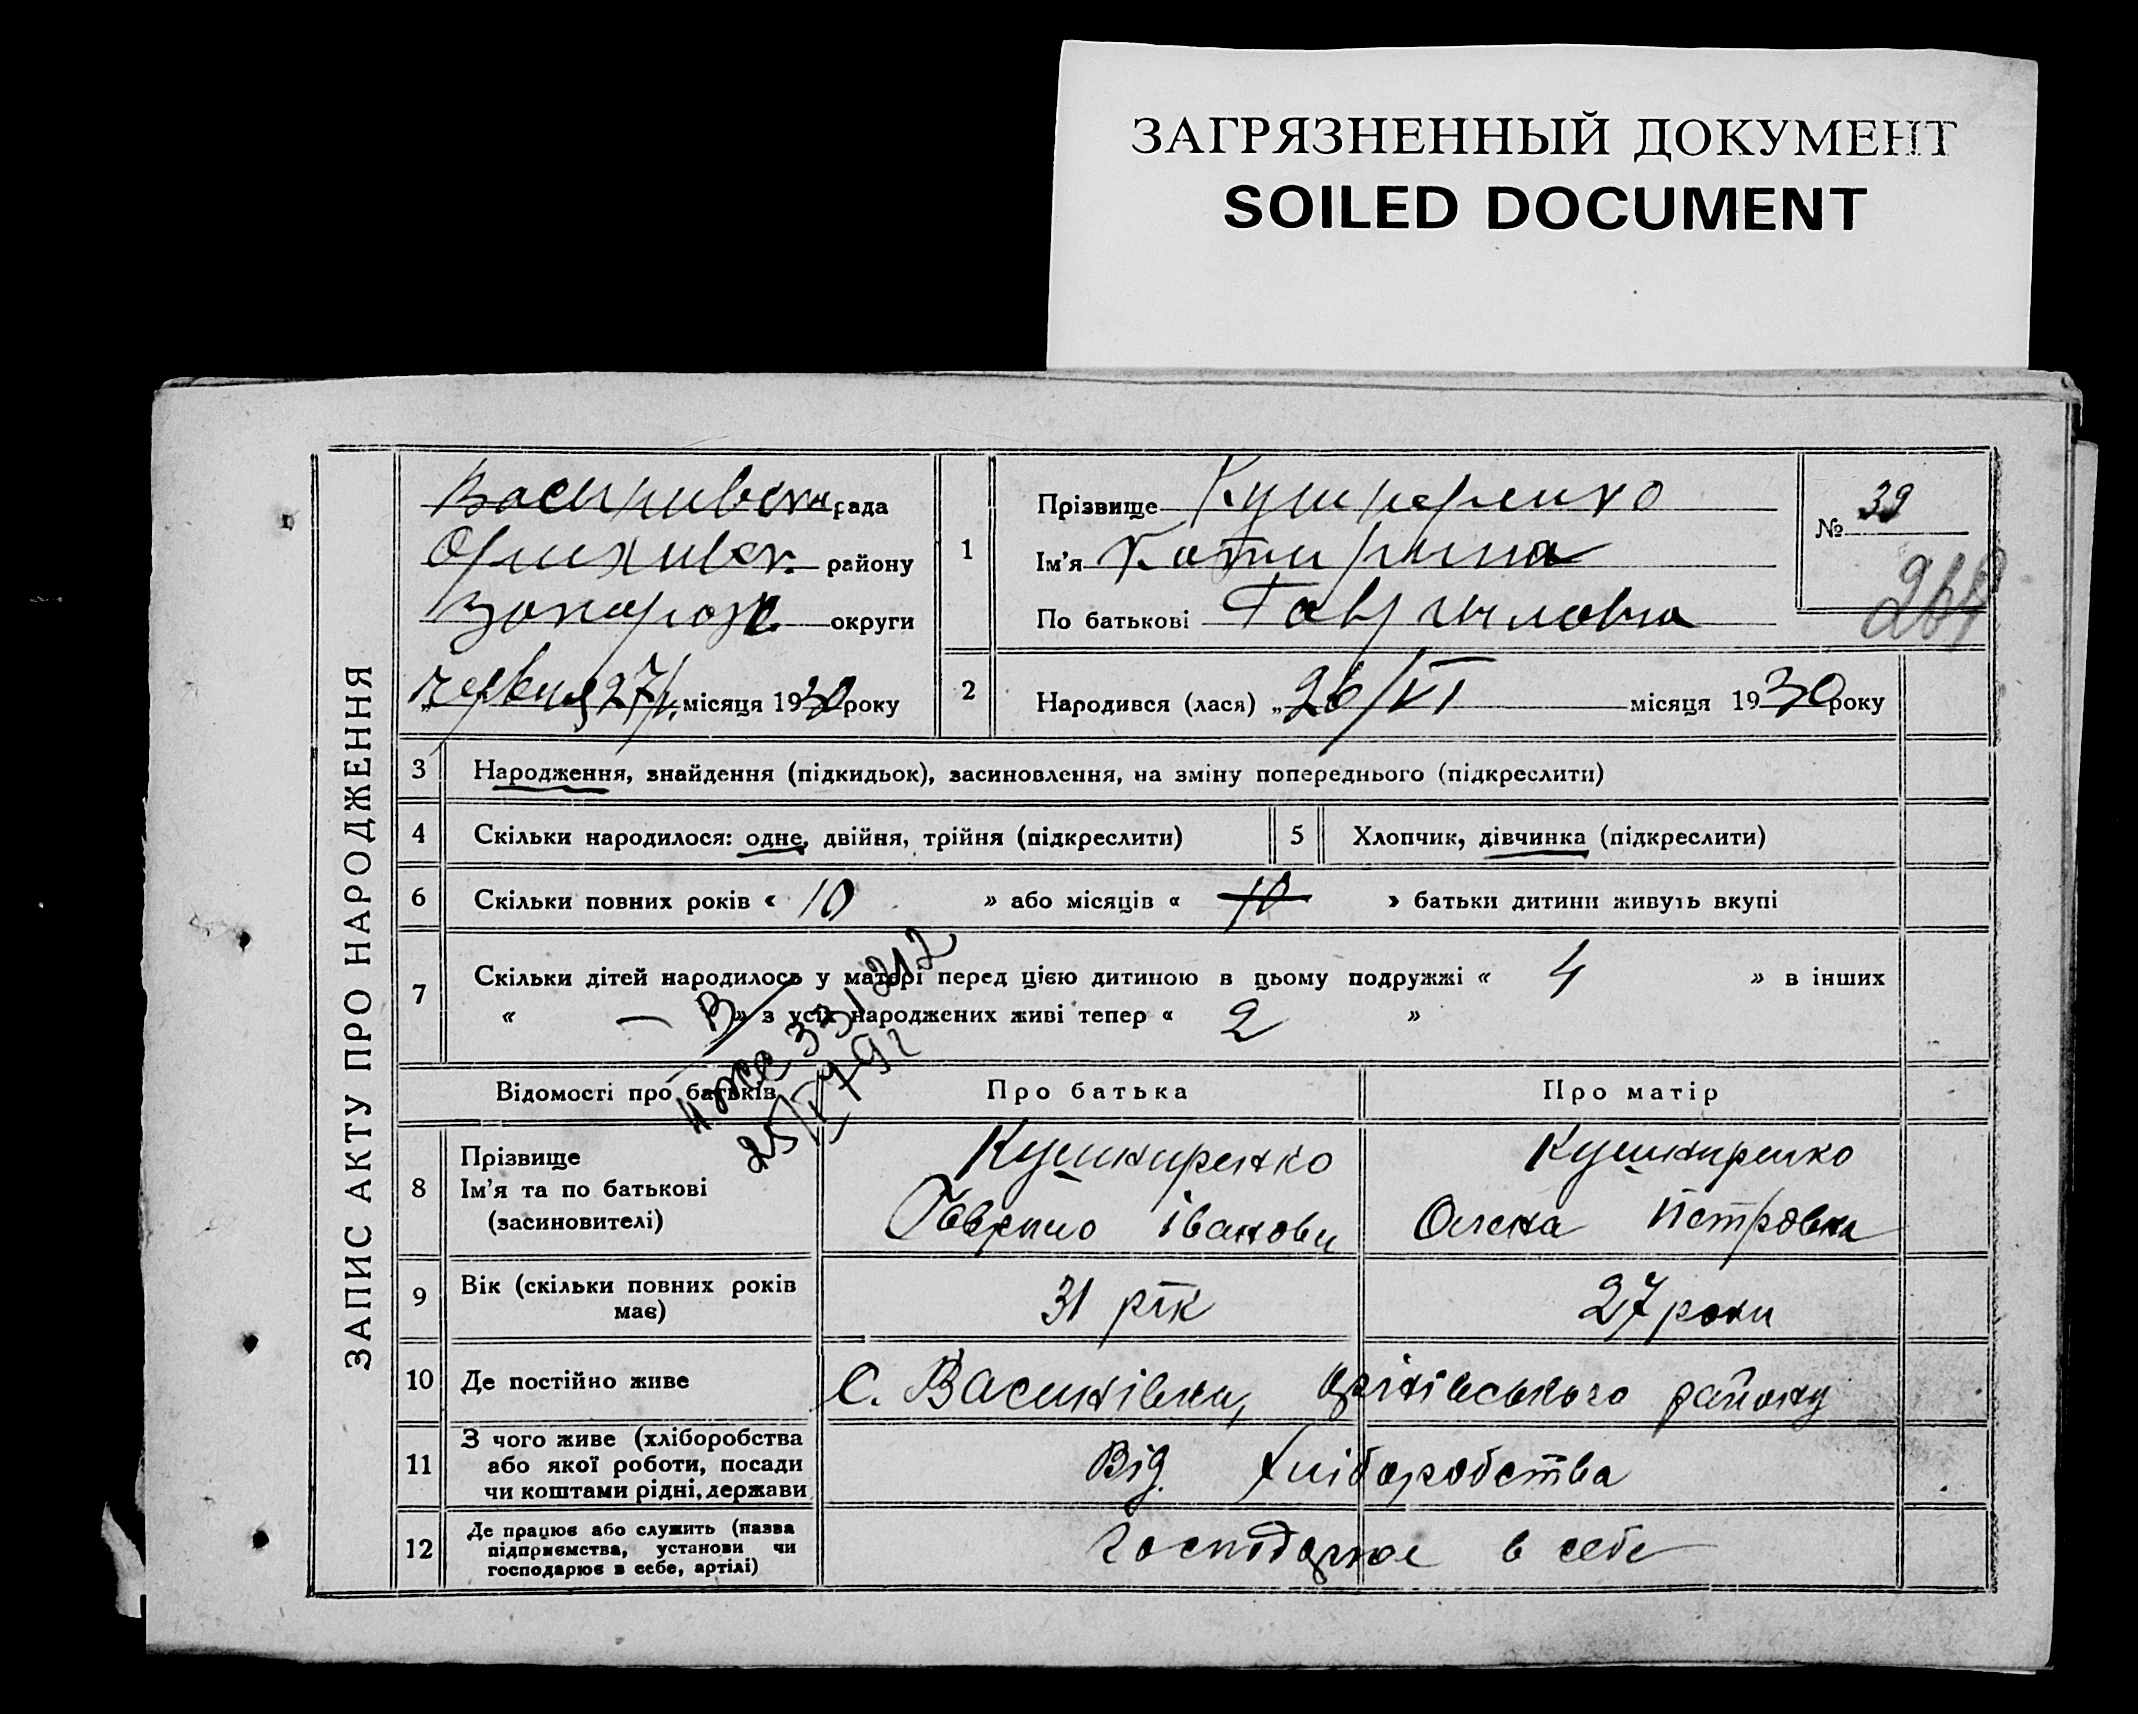 ЗАГРЯЗНЕННЫЙ ДОКУМЕНТ
SOILED DOCUMENT
ЗАПИС АКТУ ПРО НАРОДЖЕННЯ
Василивска рада
Орихивск. району
Запорож округи
„червня 27/ місяця 1930 року
1
Прізвище Кушниренко
Ім'я Катирина
По батькові Гавриловна
№ 39
2
Народився (лася) „26/VI місяця 1930 року
3 Народження, знайдення (підкидьок), засиновлення, на зміну попереднього (підкреслити)
4 Скільки народилося: одне, двійня, трійня (підкреслити)
5 Хлопчик, дівчинка (підкреслити)
6 Скільки повних років « 10 » або місяців « 10 » батьки дитини живуть вкупі
7 Скільки дітей народилось у матері перед цією дитиною в цьому подружжі « 4 » в інших
« — » з усіх народжених живі тепер « 2 »
В/
331212
25/I 79г
Відомості про батьків Про батька Про матір
8 Прізвище
Ім'я та по батькові
(засиновителі)
Кушниренко
Гаврило Іванови
Кушниренко
Олена Петровна
9 Вік (скільки повних років
має)
31 рік
27 роки
10 Де постійно живе
С. Василівка, Оріхівського району
11 З чого живе (хліборобства
або якої роботи, посади
чи коштами рідні, держави
Від. хліборобства
12 Де працює або служить (назва
підприємства, установи чи
господарює в себе, артілі)
господарює в себе